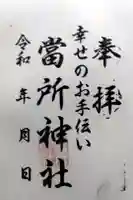 奉拝
幸せのお手伝い
當所神社
令和　年　月　日